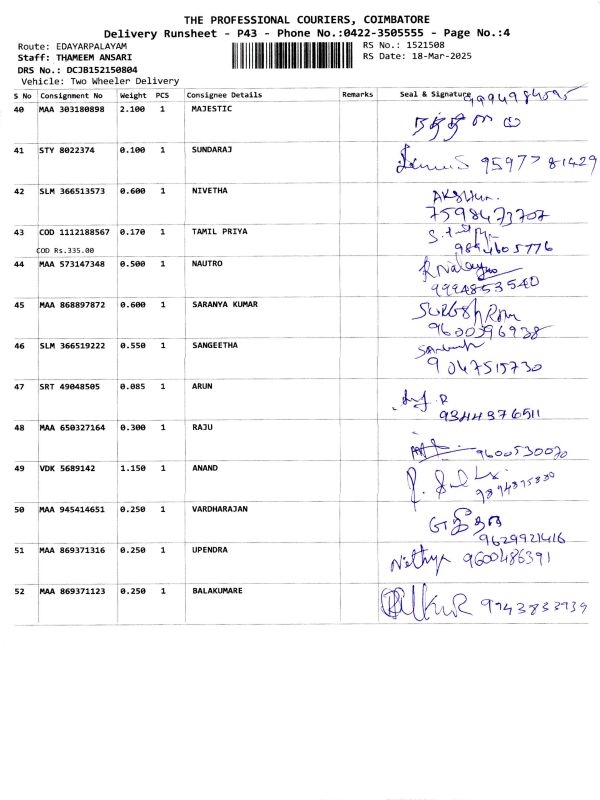 THE PROFESSIONAL COURIERS, COIMBATORE
Delivery Runsheet - P43 - Phone No.:0422-3505555 - Page No.:4
Route: EDAYARPALAYAM
RS No.: 1521508
Staff: THAMEEM ANSARI
RS Date: 18-Mar-2025
DRS No.: DCJB152150804
Vehicle: Two Wheeler Delivery
S No Consignment No Weight PCS Consignee Details Remarks Seal & Signature
40 MAA 303180898 2.100 1 MAJESTIC
41 STY 8022374 0.100 1 SUNDARAJ
9597781429
42 SLM 366513573 0.600 1 NIVETHA
7598473707
43 COD 1112188567 0.170 1 TAMIL PRIYA
COD Rs.335.00
9894605776
44 MAA 573147348 0.500 1 NAUTRO
9994853540
45 MAA 868897872 0.600 1 SARANYA KUMAR
9600396938
46 SLM 366519222 0.550 1 SANGEETHA
9047515730
47 SRT 49048505 0.085 1 ARUN
9344376511
48 MAA 650327164 0.300 1 RAJU
9600530070
49 VDK 5689142 1.150 1 ANAND
9894895830
50 MAA 945414651 0.250 1 VARDHARAJAN
9629921416
51 MAA 869371316 0.250 1 UPENDRA
Nethya 9600486391
52 MAA 869371123 0.250 1 BALAKUMARE
9943833939